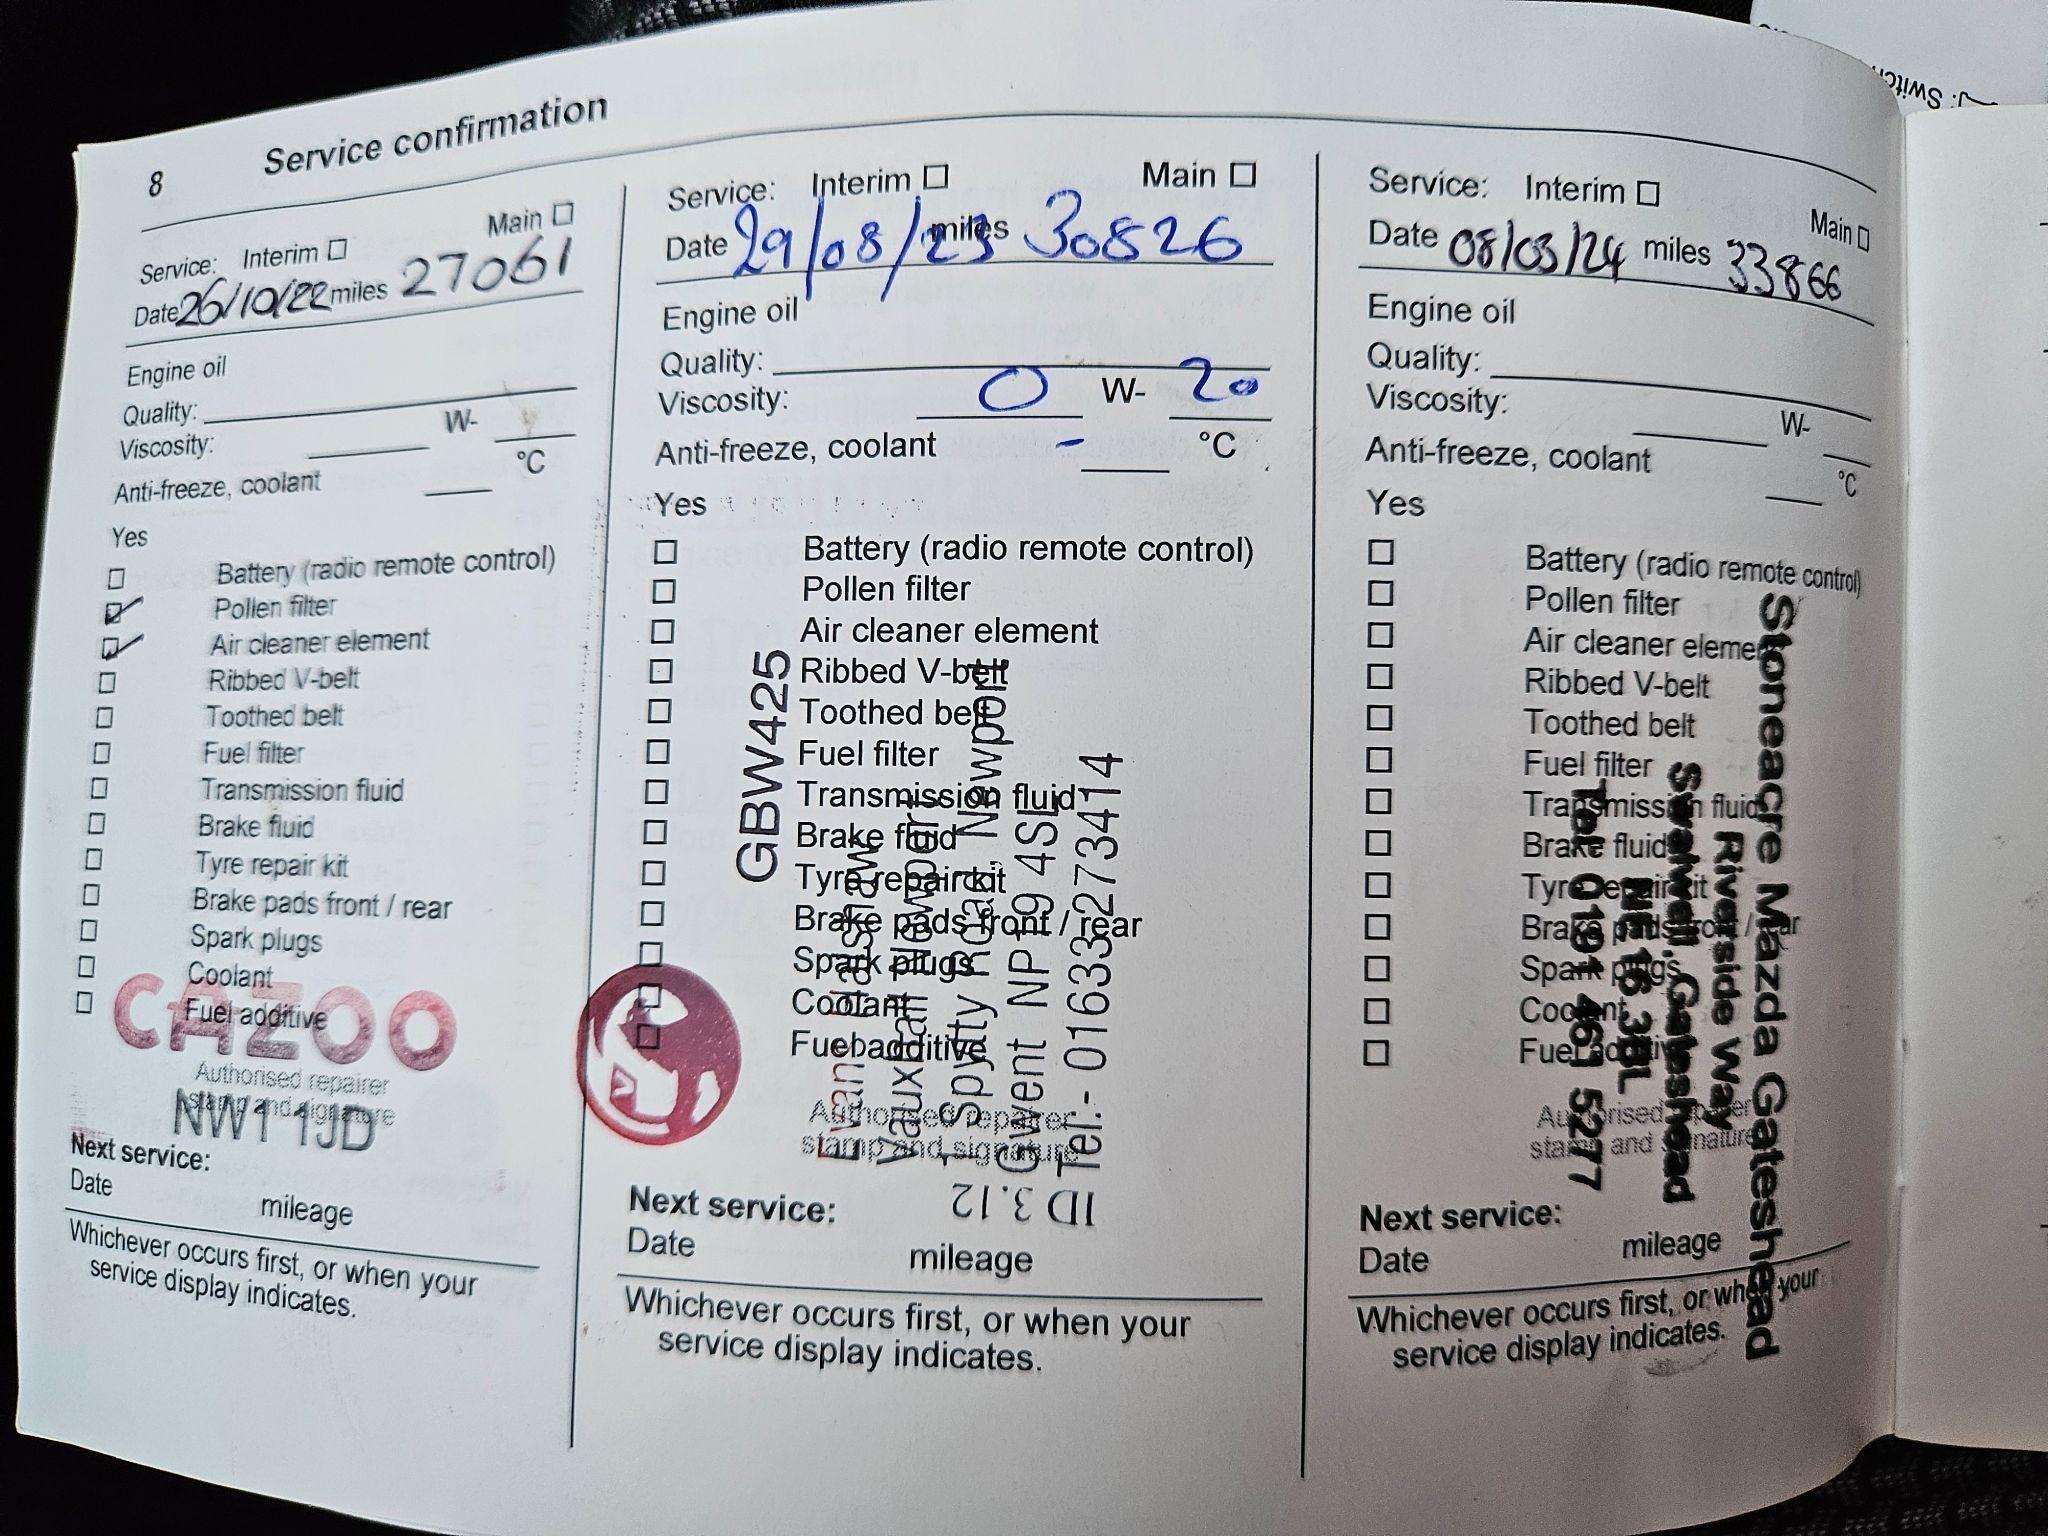 8 Service confirmation
Service: Interim Main
Date 26/10/22 miles 27061
Engine oil
Quality:
Viscosity: W-
Anti-freeze, coolant °C
Yes
Battery (radio remote control)
Pollen filter
Air cleaner element
Ribbed V-belt
Toothed belt
Fuel filter
Transmission fluid
Brake fluid
Tyre repair kit
Brake pads front / rear
Spark plugs
Coolant
Fuel additive
CAZOO
Authorised repairer
stamp and signature
NW1 1JD
Next service:
Date mileage
Whichever occurs first, or when your
service display indicates.
Service: Interim Main
Date 29/08/23 miles 30826
Engine oil
Quality:
Viscosity: 0 W- 20
Anti-freeze, coolant - °C
Yes
Battery (radio remote control)
Pollen filter
Air cleaner element
Ribbed V-belt
Toothed belt
Fuel filter
Transmission fluid
Brake fluid
Tyre repair kit
Brake pads front / rear
Spark plugs
Coolant
Fuel additive
GBW425
Evans Halshaw
Vauxhall Newport
1 Spytty Road, Newport
Gwent NP19 4SL
Tel.- 01633 273414
Authorised repairer
stamp and signature
ID 3.12
Next service:
Date mileage
Whichever occurs first, or when your
service display indicates.
Service: Interim Main
Date 08/03/24 miles 33866
Engine oil
Quality:
Viscosity: W-
Anti-freeze, coolant °C
Yes
Battery (radio remote control)
Pollen filter
Air cleaner element
Ribbed V-belt
Toothed belt
Fuel filter
Transmission fluid
Brake fluid
Tyre repair kit
Brake pads front / rear
Spark plugs
Coolant
Fuel additive
Stoneacre Mazda Gateshead
Riverside Way
Swalwell, Gateshead
NE16 3BL
Tel 0191 461 5277
Authorised repairer
stamp and signature
Next service:
Date mileage
Whichever occurs first, or when your
service display indicates.